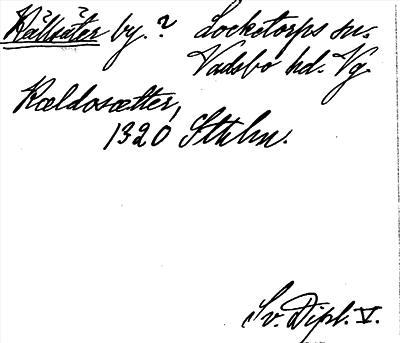 Källsäter by.? Locketorps sn.
Vadsbo hd. Vg.
Kældosætter,
1320 Sthlm.
Sv. Dipl. V.